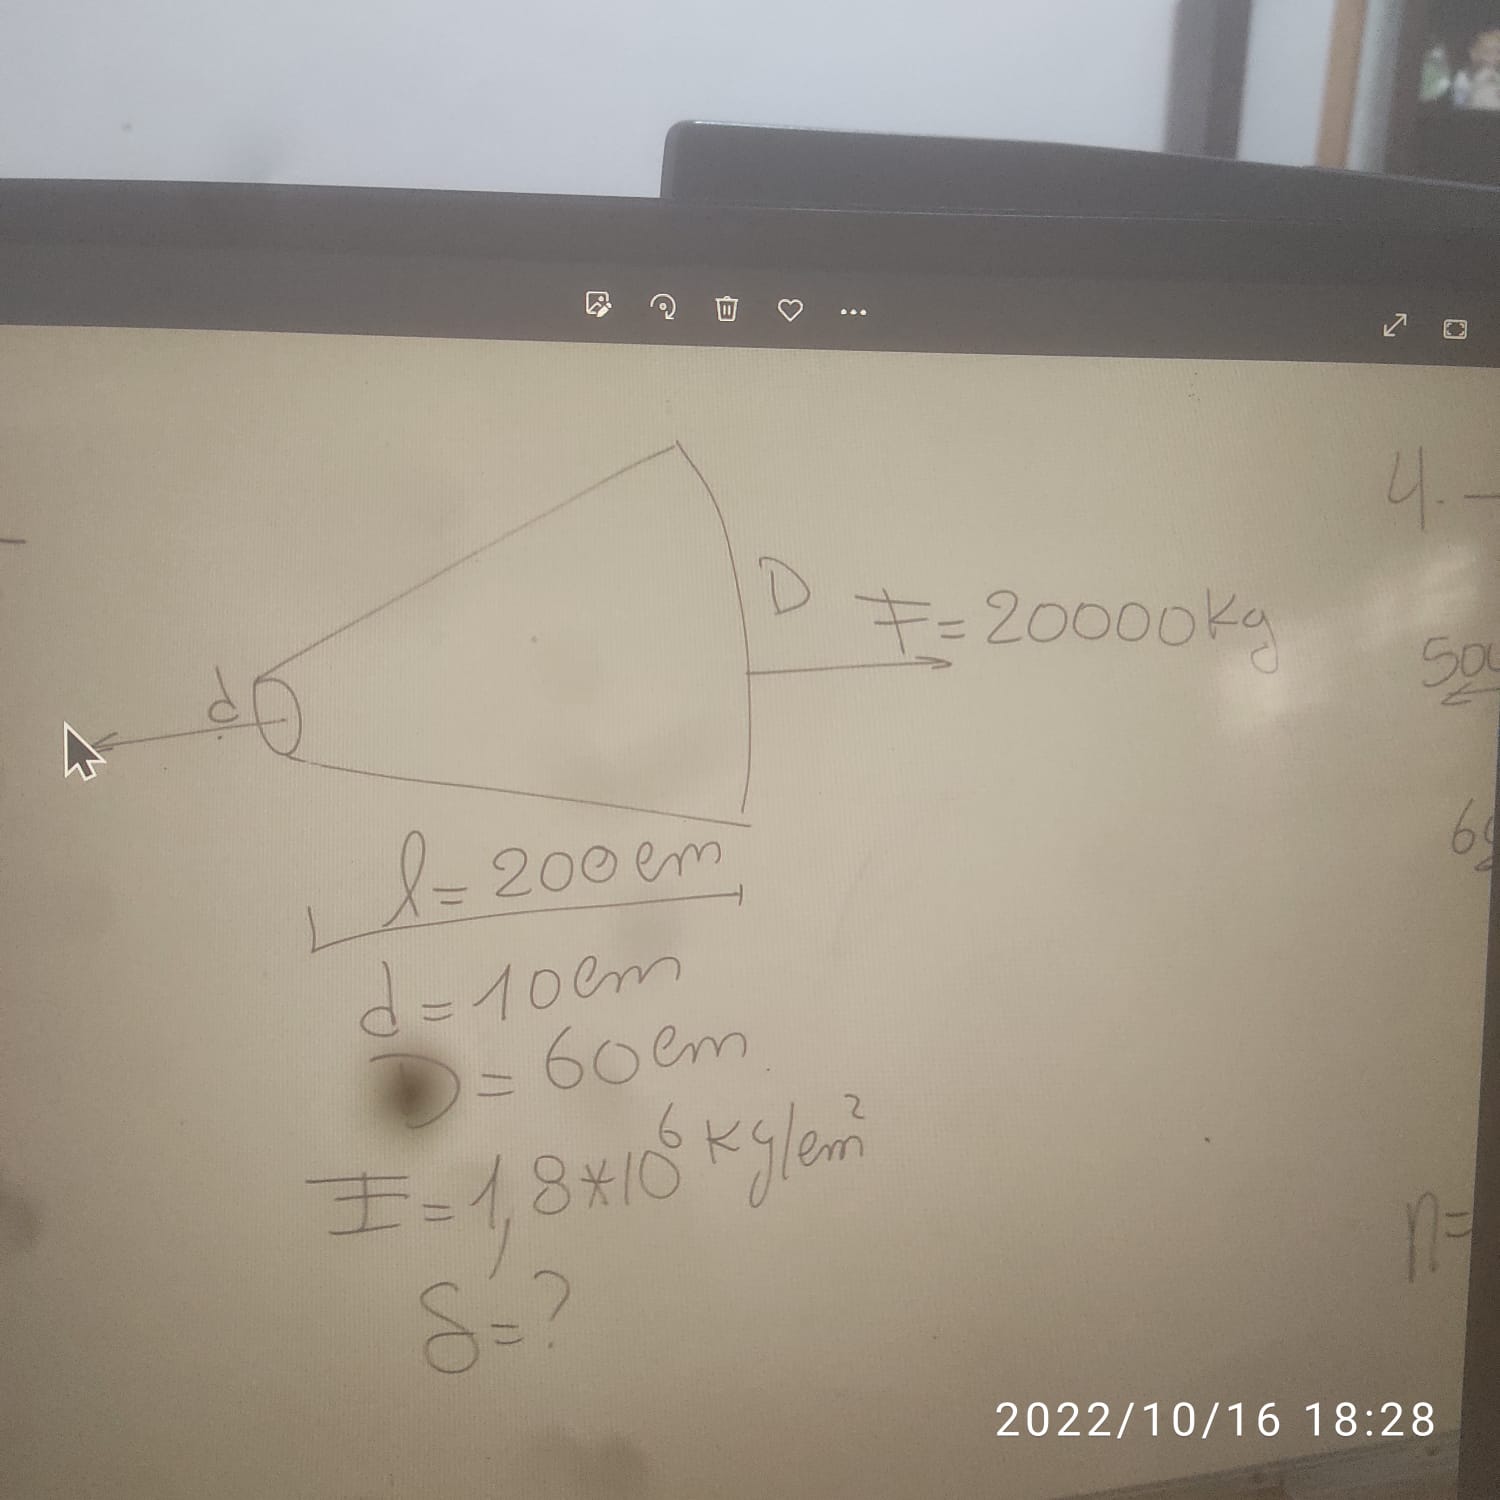 4. –
D F = 20000Kg
d
l = 200 cm
d = 10 cm
D = 60 cm
E = 1,8*10⁶ Kg/cm²
δ = ?
n=
2022/10/16 18:28